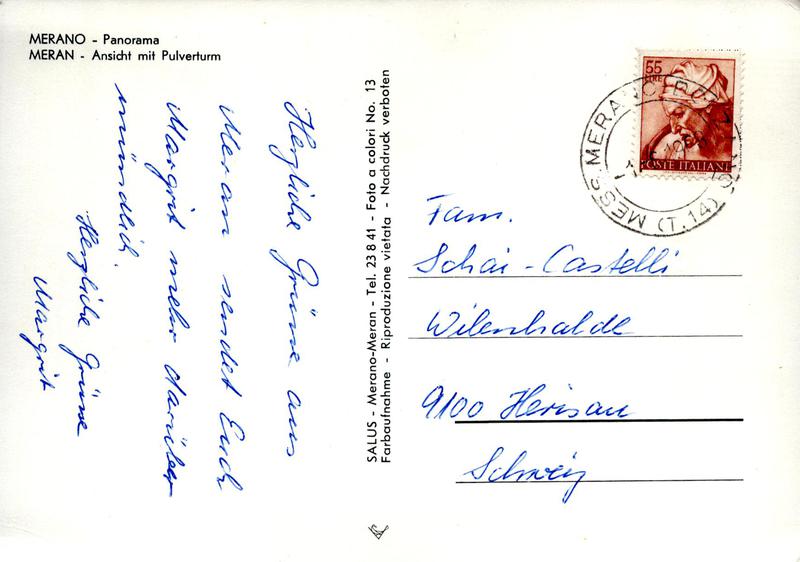 MERANO - Panorama
MERAN - Ansicht mit Pulverturm
Herzliche Grüsse aus
Meran sendet Euch
Margrit mehr darüber
mündlich.
Herzliche Grüsse
Margrit
SALUS - Merano-Meran - Tel. 23 8 41 - Foto a colori No. 13
Farbaufnahme - Riproduzione vietata - Nachdruck verboten
55
LIRE
POSTE ITALIANE
MERANO
MESS.
(T.14)
Fam.
Schai - Castelli
Wilenhalde
9100 Herisau
Schweiz